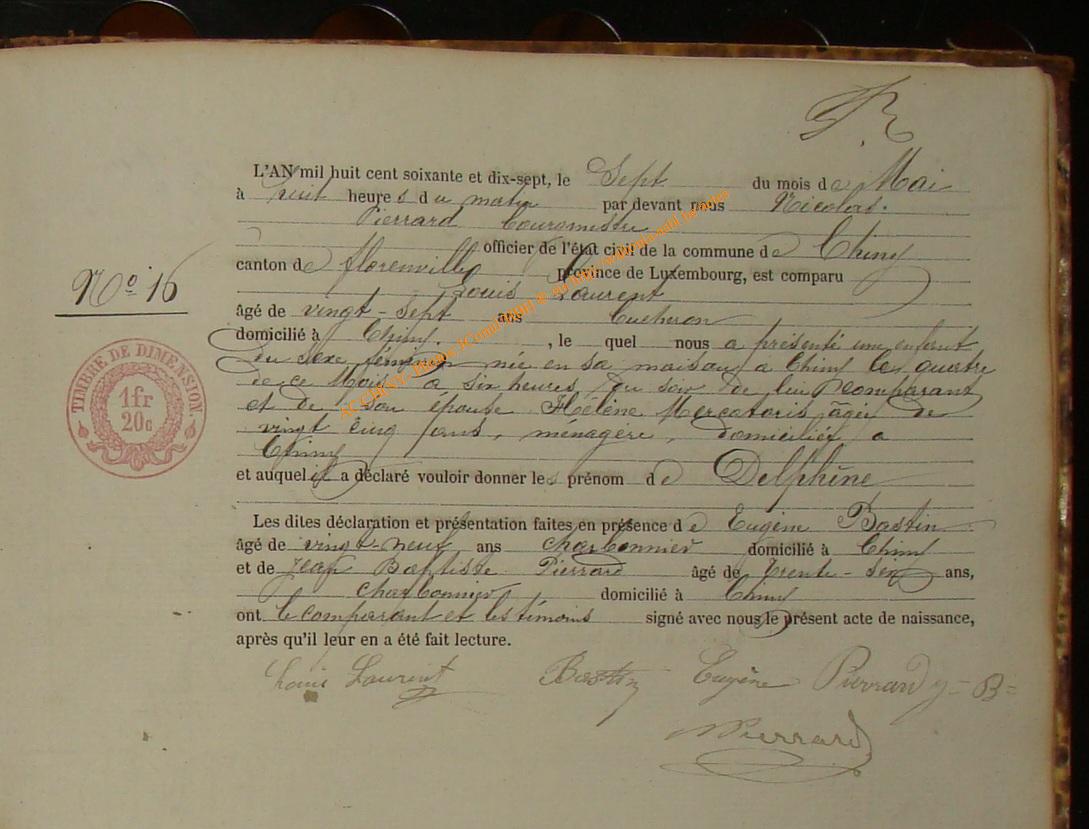 L'AN mil huit cent soixante et dix-sept, le Sept du mois de Mai
à huit heures du matin par devant nous Nicolas
Pierrard Bourgmestre
officier de l'état civil de la commune de Chiny
canton de florenville province de Luxembourg, est comparu
Nº 16
Louis Laurent
âgé de vingt-sept ans bucheron
domicilié à Chiny. , le quel nous a présenté une enfant
du sexe féminin née en sa maison a Chiny le quatre
de ce Mois a six heures du soir de lui comparant
et de son épouse Hélène Mercatoris âgée de
vingt cinq ans, ménagère, domiciliée a
Chiny
et auquel il a déclaré vouloir donner les prénom de Delphine
TIMBRE DE DIMENSION.
1 fr
20 c
Les dites déclaration et présentation faites en présence de Eugène Bastin
âgé de vingt-neuf ans charbonnier domicilié à Chiny
et de Jean Baptiste Pierrard âgé de Trente-six ans,
charbonnier domicilié à Chiny
ont le comparant et les témoins signé avec nous le présent acte de naissance,
après qu'il leur en a été fait lecture.
Louis Laurent Bastin Eugène Pierrard J=B=
NPierrard